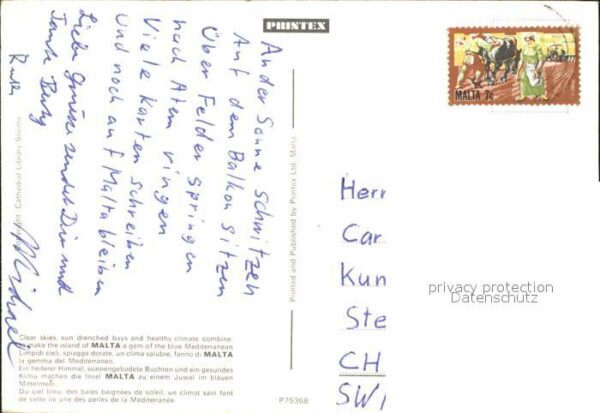 PRINTEX
An der Sonne schwitzen
Auf dem Balkon sitzen
Über Felder springen
nach Atem ringen
Viele Karten schreiben
und noch auf Malta bleiben
Liebe Grüsse sendet Dir und
Michael
Printed and Published by Printex Ltd. Malta
Cathedral Library Sliema
MALTA 7c
Herr
Car
Kun
Ste
CH
SWI
privacy protection
Datenschutz
Clear skies, sun drenched bays and healthy climate combine,
to make the island of MALTA a gem of the blue Mediterranean
Limpidi cieli, spiagge dorate, un clima salubre, fanno di MALTA
la gemma del Mediterraneo.
Ein heiterer Himmel, sonnengebadete Buchten und ein gesundes
Klima machen die Insel MALTA zu einem Juwel im blauen
Mittelmeer.
Du ciel bleu, des lunes baignées de soleil, un climat sain font
de cette île une des perles de la Méditerranée.
P75368